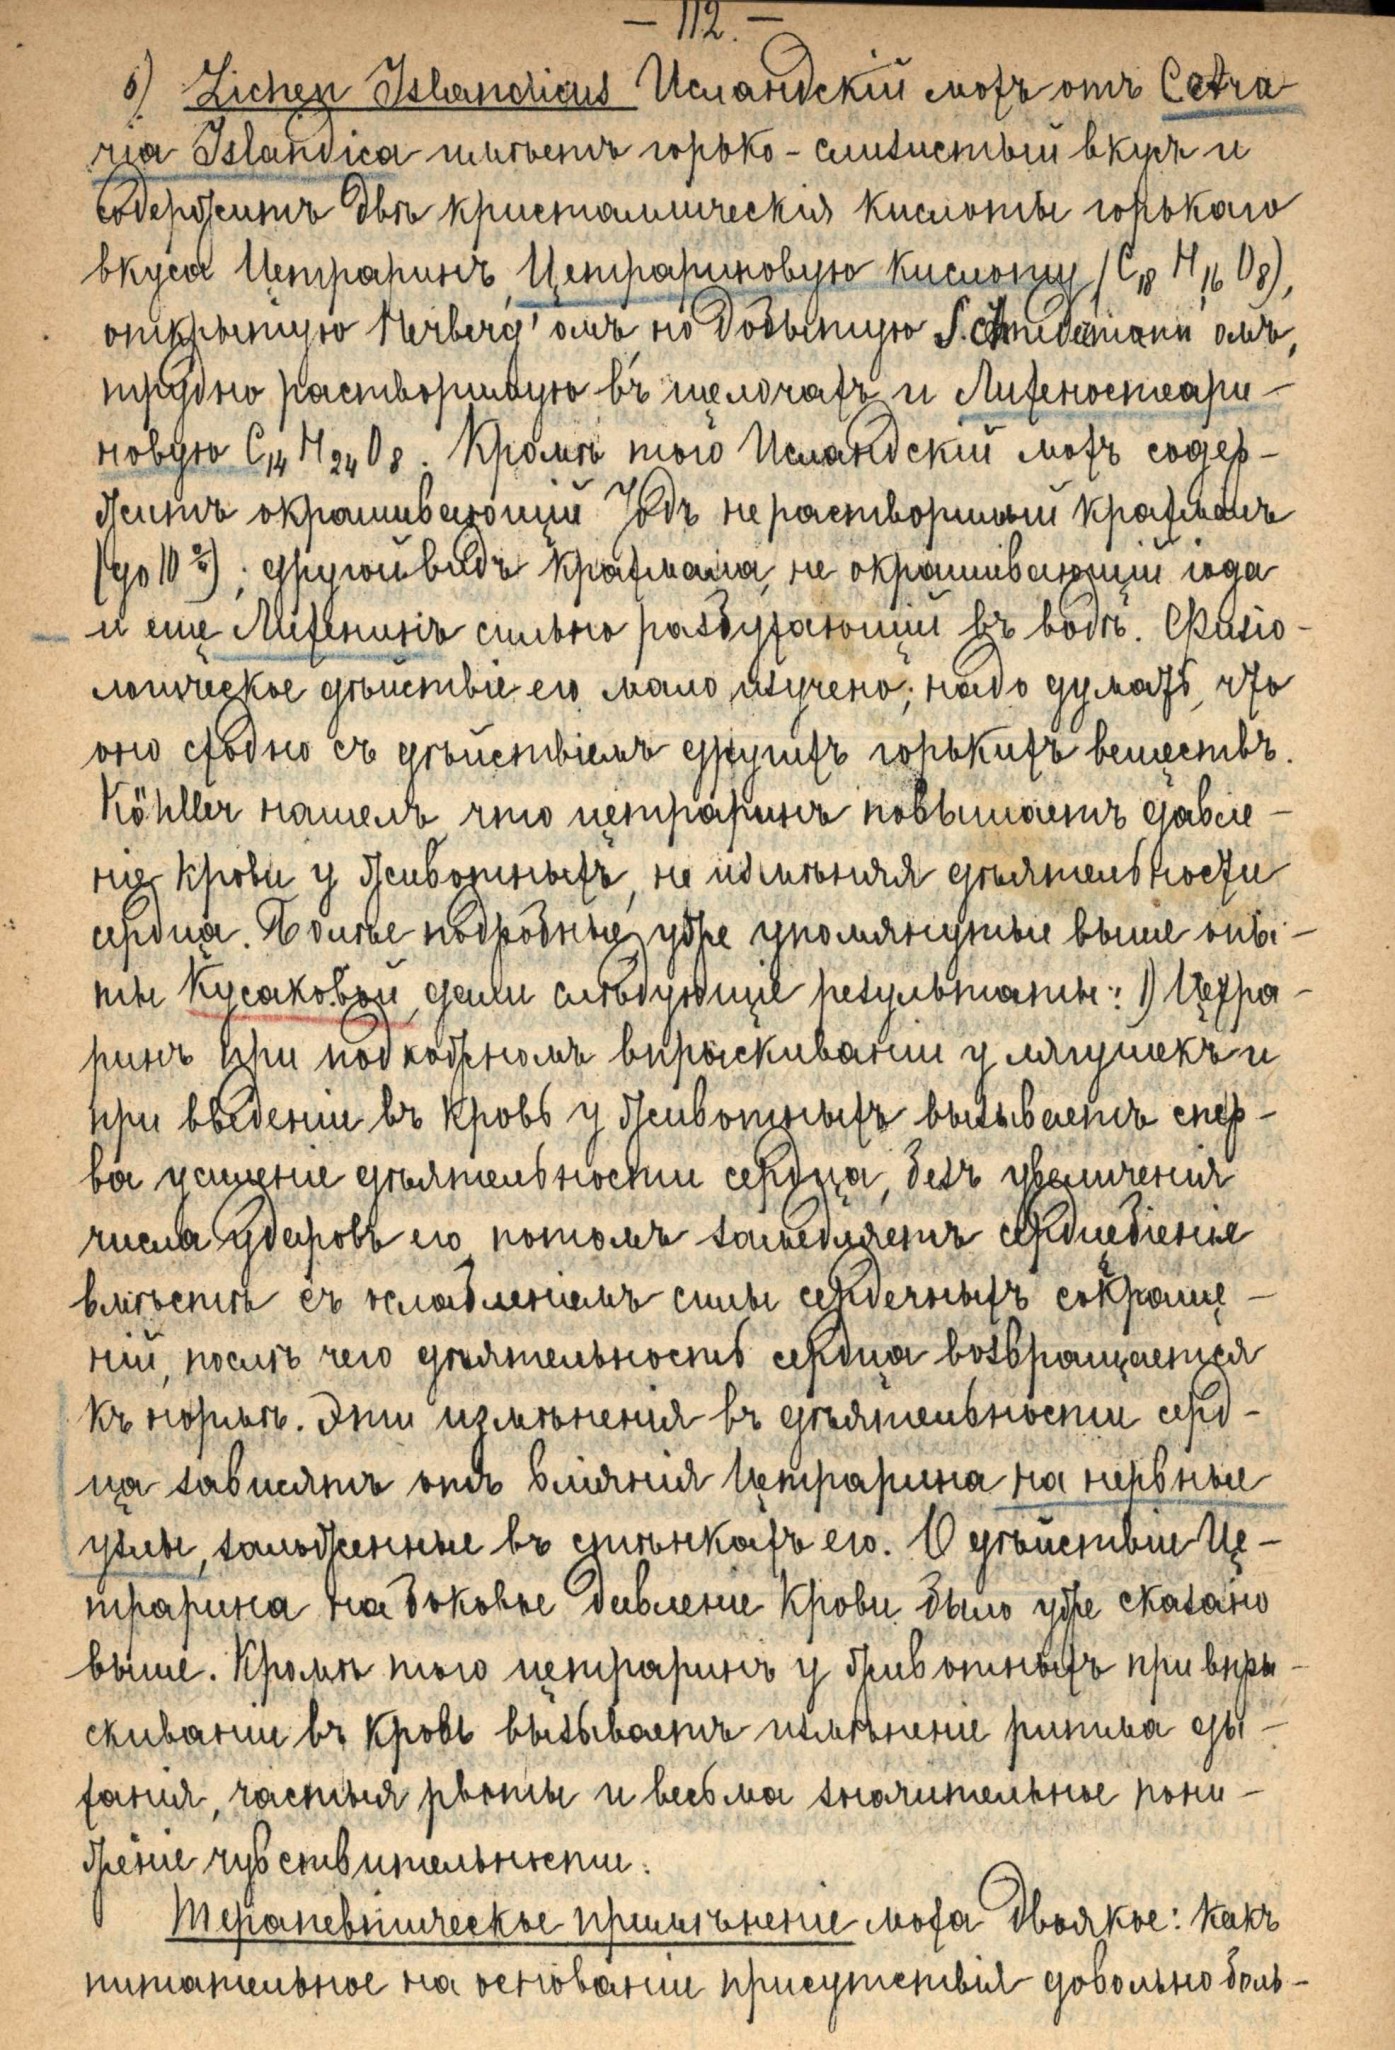 — 112. —
б) Lichen Islandicus Исландскій мохъ отъ Cetra
ria Islandica имѣетъ горько-слизистый вкусъ и
содержитъ двѣ кристаллическія кислоты горькаго
вкуса Цетраринъ, Цетрариновую кислоту (C18 H16 O8),
открытую Herberg'омъ, но добытую Schnedermann омъ,
трудно растворимую въ щелочахъ и Лихеностеари-
новую C14 H24 O8. Кромѣ того Исландскій мохъ содер-
житъ окрашивающій Іодъ нерастворимый крахмалъ
(до 10%); другой видъ крахмала, не окрашивающій іода
и еще Лихенинъ сильно разбухающій въ водѣ. Физіо-
логическое дѣйствіе его мало изучено; надо думать, что
оно сходно съ дѣйствіемъ другихъ горькихъ веществъ.
Köhller нашелъ что цетраринъ повышаетъ давле-
ніе крови у животныхъ, не измѣняя дѣятельности
сердца. Болѣе подробные, уже упомянутые выше опы-
ты Кусаковой, дали слѣдующіе результаты: 1) Цетра-
ринъ при подкожномъ впрыскиваніи у лягушекъ и
при введеніи въ кровь у животныхъ вызываетъ спер-
ва усиленіе дѣятельности сердца, безъ увеличенія
числа ударовъ его, потомъ замедляетъ сердцебіеніе
вмѣстѣ съ ослабленіемъ силы сердечныхъ сокраще-
ній, послѣ чего дѣятельность сердца возвращается
къ нормѣ. Эти измѣненія въ дѣятельности серд-
ца зависятъ отъ вліянія Цетрарина на нервные
узлы, заложенные въ стѣнкахъ его. О дѣйствіи Це-
трарина на боковое давленіе крови было уже сказано
выше. Кромѣ того цетраринъ у животныхъ при впры-
скиваніи въ кровь вызываетъ измѣненіе ритма ды-
ханія, частыя рвоты и весьма значительное пони-
женіе чувствительности.
Терапевтическое примѣненіе моха двоякое: какъ
питательное на основаніи присутствія довольно боль-